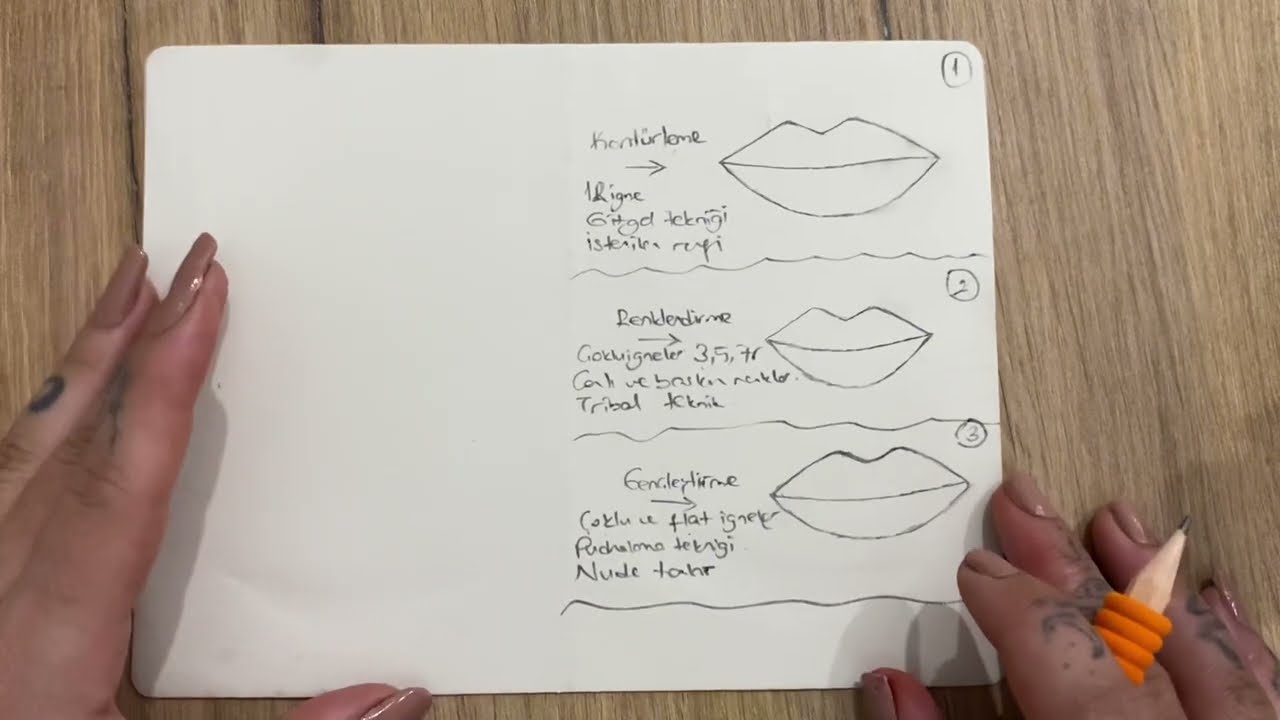 1
Kontürleme
Gitgel tekniği
2
Renklendirme
Çokluiğneler 3,5,7r
Canlı ve baskın renkler.
Tribal teknik
3
Gençleştirme
Çoklu ve flat iğneler
Pudralama tekniği
Nude